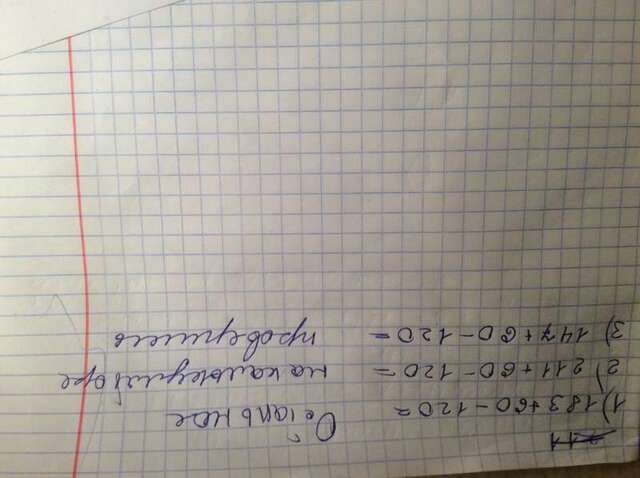 211
1) 183+60-120=
2) 211+60-120=
3) 147+60-120=
Остальное
на калькуляторе
проверишь